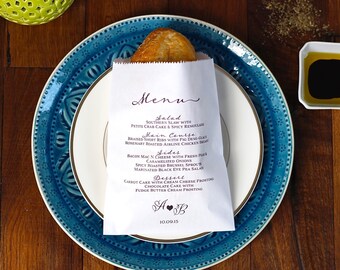 Menu
Salad
Southern Slaw with
Petite Crab Cake & Spicy Remoulade
Main Course
Braised Short Ribs with Pig Demi-Glace
Rosemary Roasted Airline Chicken Breast
Sides
Bacon Mac N Cheese with Fresh Pork
Caramelized Onions
Spicy Roasted Brussel Sprout
Marinated Black Eye Pea Salad
Dessert
Carrot Cake with Cream Cheese Frosting
Chocolate Cake with
Fudge Butter Cream Frosting
A ♥ B
10.09.15